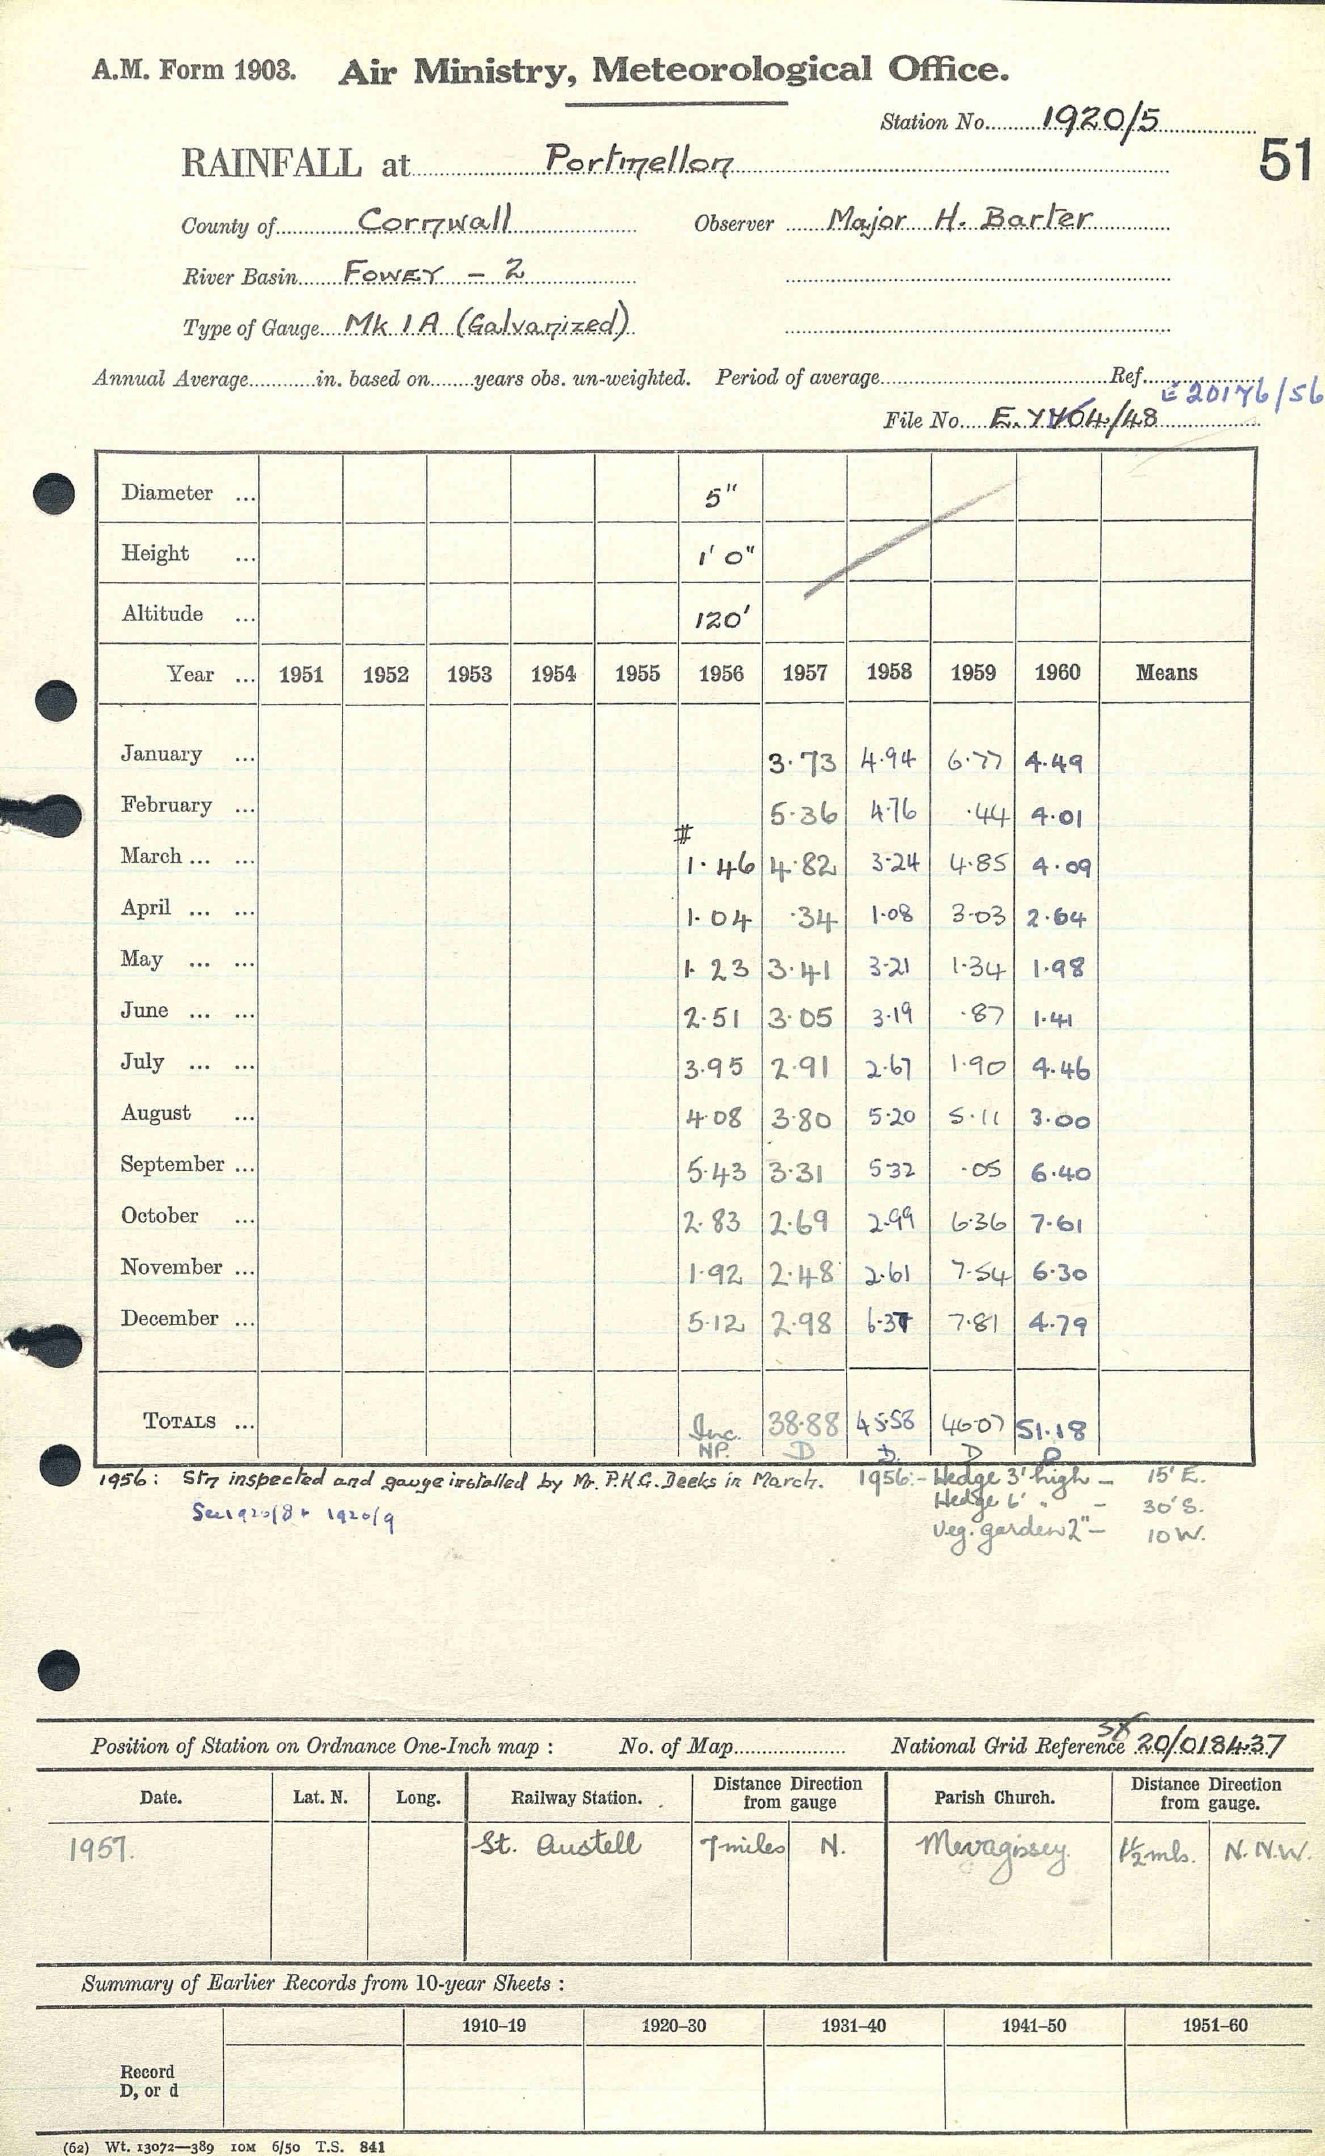 A.M. Form 1903. Air Ministry, Meteorological Office.
Station No. 1920/5
51
RAINFALL at Portmellon
County of Cornwall Observer Major H. Barter
River Basin FOWEY - 2
Type of Gauge Mk 1A (Galvanized)
Annual Average in. based on years obs. un-weighted. Period of average Ref.
E 20176/56
File No. E. 7704/48
Diameter ... 5"
Height ... 1' 0"
Altitude ... 120'
Year ... 1951 1952 1953 1954 1955 1956 1957 1958 1959 1960 Means
January ... 3.73 4.94 6.77 4.49
February ... 5.36 4.76 .44 4.01
#
March ... ... 1.46 4.82 3.24 4.85 4.09
April ... ... 1.04 .34 1.08 3.03 2.64
May ... ... 1.23 3.41 3.21 1.34 1.98
June ... ... 2.51 3.05 3.19 .87 1.41
July ... ... 3.95 2.91 2.67 1.90 4.46
August ... 4.08 3.80 5.20 5.11 3.00
September ... 5.43 3.31 5.32 .05 6.40
October ... 2.83 2.69 2.99 6.36 7.61
November ... 1.92 2.48 2.61 7.54 6.30
December ... 5.12 2.98 6.37 7.81 4.79
TOTALS ... Inc. 38.88 45.58 46.07 51.18
NP. D D. D D
1956: Stn inspected and gauge installed by Mr. P.H.G. Deeks in March. 1956:- Hedge 3' high - 15' E.
Hedge 6' " - 30' S.
See 1920/8 + 1920/9
Veg. garden 2" - 10 W.
Position of Station on Ordnance One-Inch map : No. of Map National Grid Reference SX 20/018437
Date. Lat. N. Long. Railway Station. Distance Direction from gauge Parish Church. Distance Direction from gauge.
1957. St. Austell 7 miles N. Mevagissey. 1½ mls. N.N.W.
Summary of Earlier Records from 10-year Sheets :
1910–19 1920–30 1931–40 1941–50 1951–60
Record
D, or d
(62) Wt. 13072—389 10M 6/50 T.S. 841